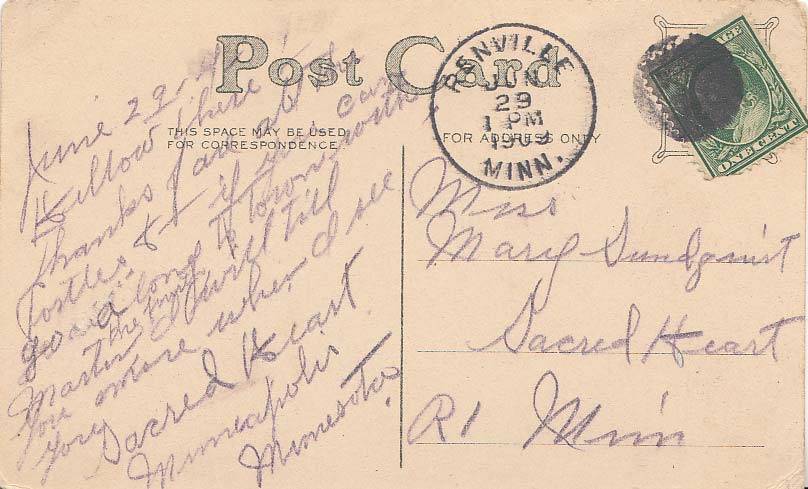 Post Card
THIS SPACE MAY BE USED
FOR CORRESPONDENCE
FOR ADDRESS ONLY
RENVILLE
JUN
29
1 PM
1909
MINN.
ONE CENT
June 29 -
Hellow there
Thanks
& if you can
go along to Town with
Martin I will till
you more when I see
you
Sacred Heart
Minneapolis
Minnesota
Miss
Mary Sundquist
Sacred Heart
R1 Minn